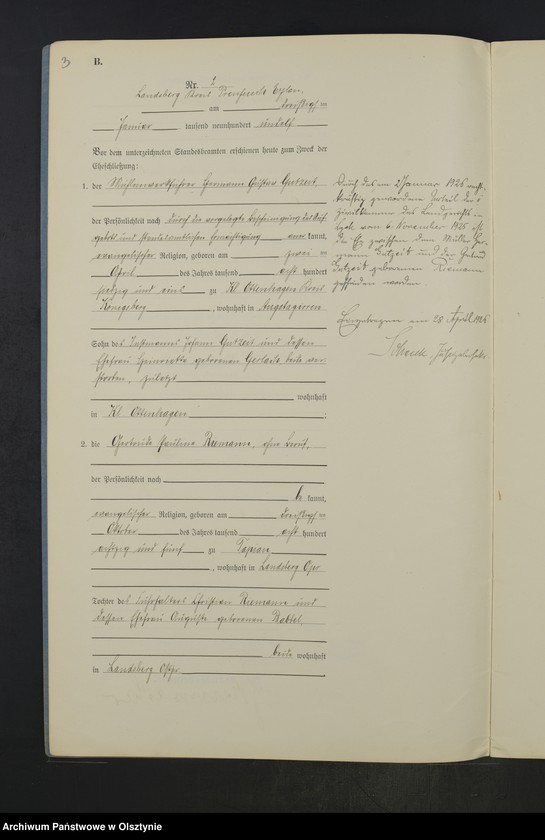 3
B.
Nr. 2
Landsberg Kreis Preussisch Eylau,
am dreißigsten
Januar tausend neunhundert
Vor dem unterzeichneten Standesbeamten erschienen heute zum Zweck der
Eheschließung:
1. der Hermann Gustav Gutzeit,
der Persönlichkeit nach durch die vorgelegte Bescheinigung des Auf-
gebots und standesamtlichen Ermächtigung anerkannt,
evangelischer Religion, geboren am zwei ten
April des Jahres tausend acht hundert
und zu Kl. Ottenhagen Kreis
Königsberg, wohnhaft in
Sohn des Johann Gutzeit und dessen
Ehefrau Henriette geborenen Gerlach, beide ver-
storben, zuletzt
wohnhaft
in Kl Ottenhagen;
2. die Gertrude Pauline Riemann, ohne Beruf,
der Persönlichkeit nach
be kannt,
evangelischer Religion, geboren am dreißigsten
Oktober des Jahres tausend acht hundert
achtzig und fünf zu Tapiau
, wohnhaft in Landsberg Opr
Tochter des Christian Riemann und
dessen Ehefrau Auguste geborenen
beide wohnhaft
in Landsberg Ostpr
Durch das am Januar 1926 rechts-
kräftig gewordene Urteil der
Zivilkammer des Landgerichts in
Lyck vom 6. November 1925 ist
die Ehe zwischen dem Müller Her-
mann Gutzeit und der
Gutzeit geborenen Riemann
geschieden worden.
am 28 April 1926
Archiwum Państwowe w Olsztynie